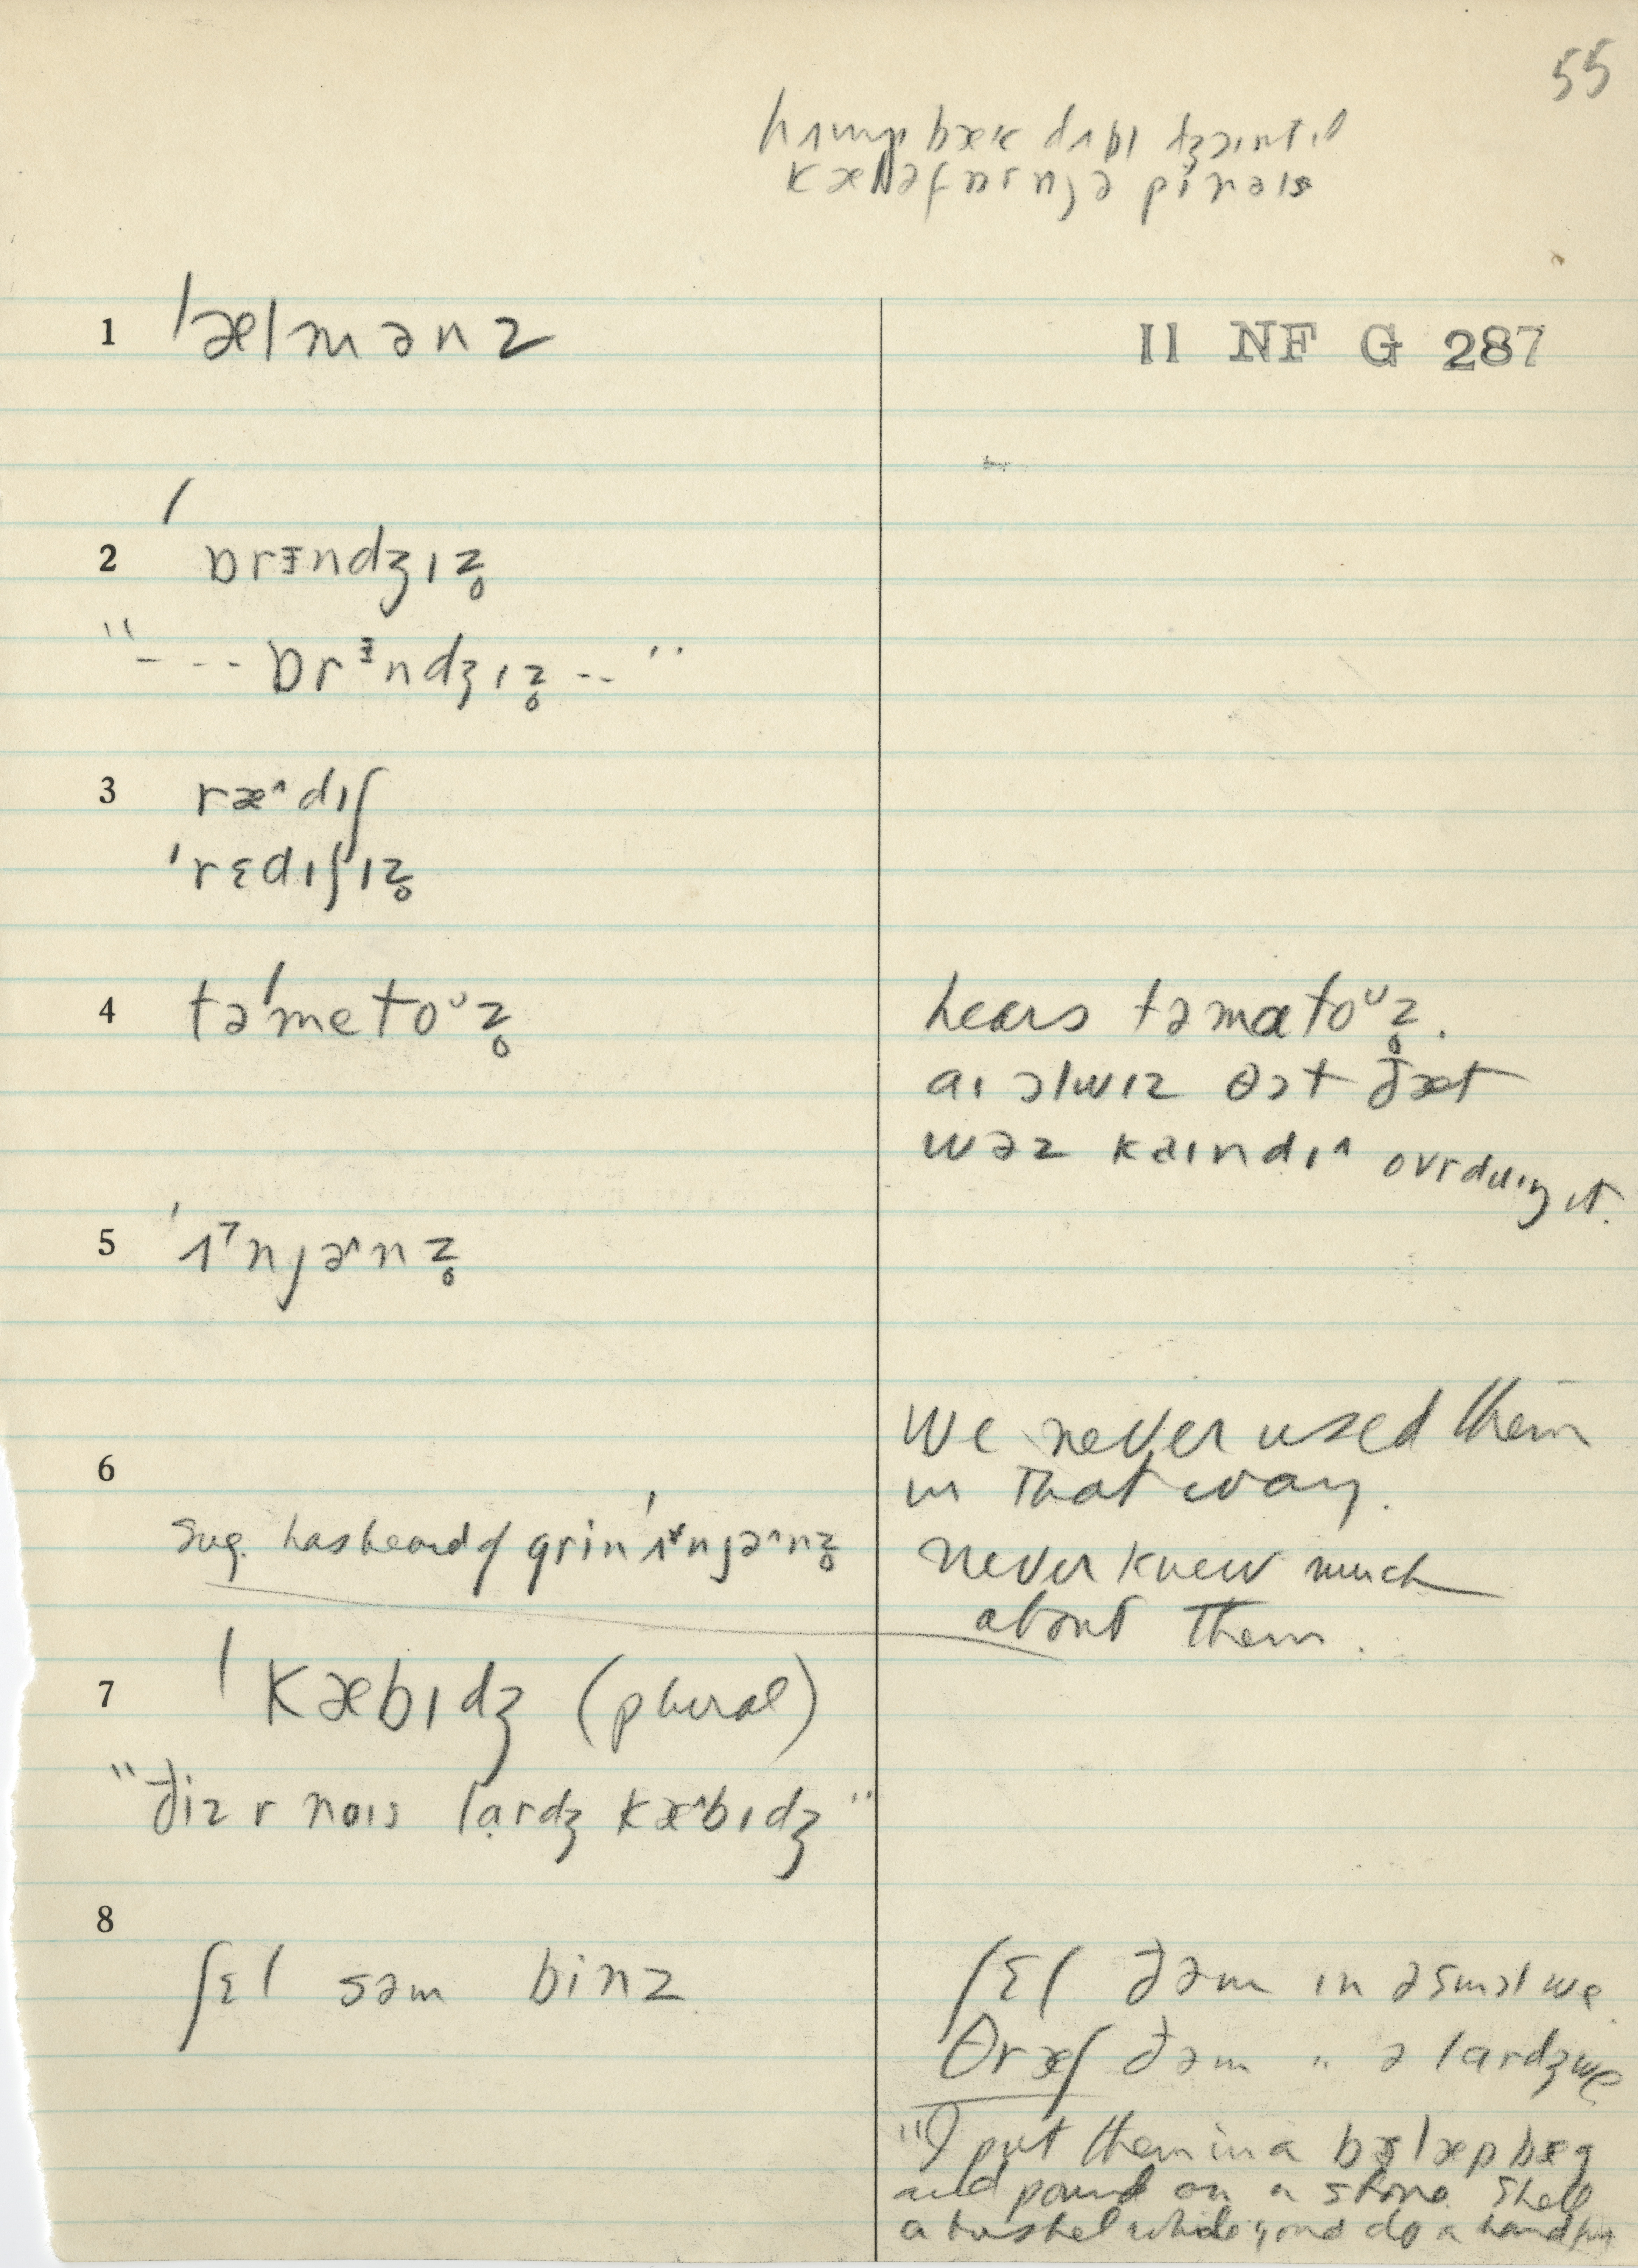 55
bæk dʌbl
1 ˈælmənz
II NF G 287
2 ˈɒrɪndʒɪz̥
"--- ɒrɪndʒɪz̥ --"
3 ræ^dɪʃ
ˈrɛdɪʃɪz̥
4 təˈmetoᵘz̥
hears təmatoᵘz̥.
aɪ ɔlwɪz θɔt ðæt
wəz kaɪndɪ^ ovrduɪŋ it.
5 ˈʌnjə^nz̥
6
We never used them
in that way.
Sug. has heard of grinˈʌnjə^nz̥
never knew much
about them.
7 ˈkæbɪdʒ (plural)
"ðiz r naɪs lardʒ kæ^bɪdʒ"
8
ʃɛl səm binz
ʃɛl ðəm ɪn ə smɔl we
θræʃ ðəm " ə lardʒ we
"I put them in a bɜlæp bæg
and pound on a stone. Shell
a bushel while you do a